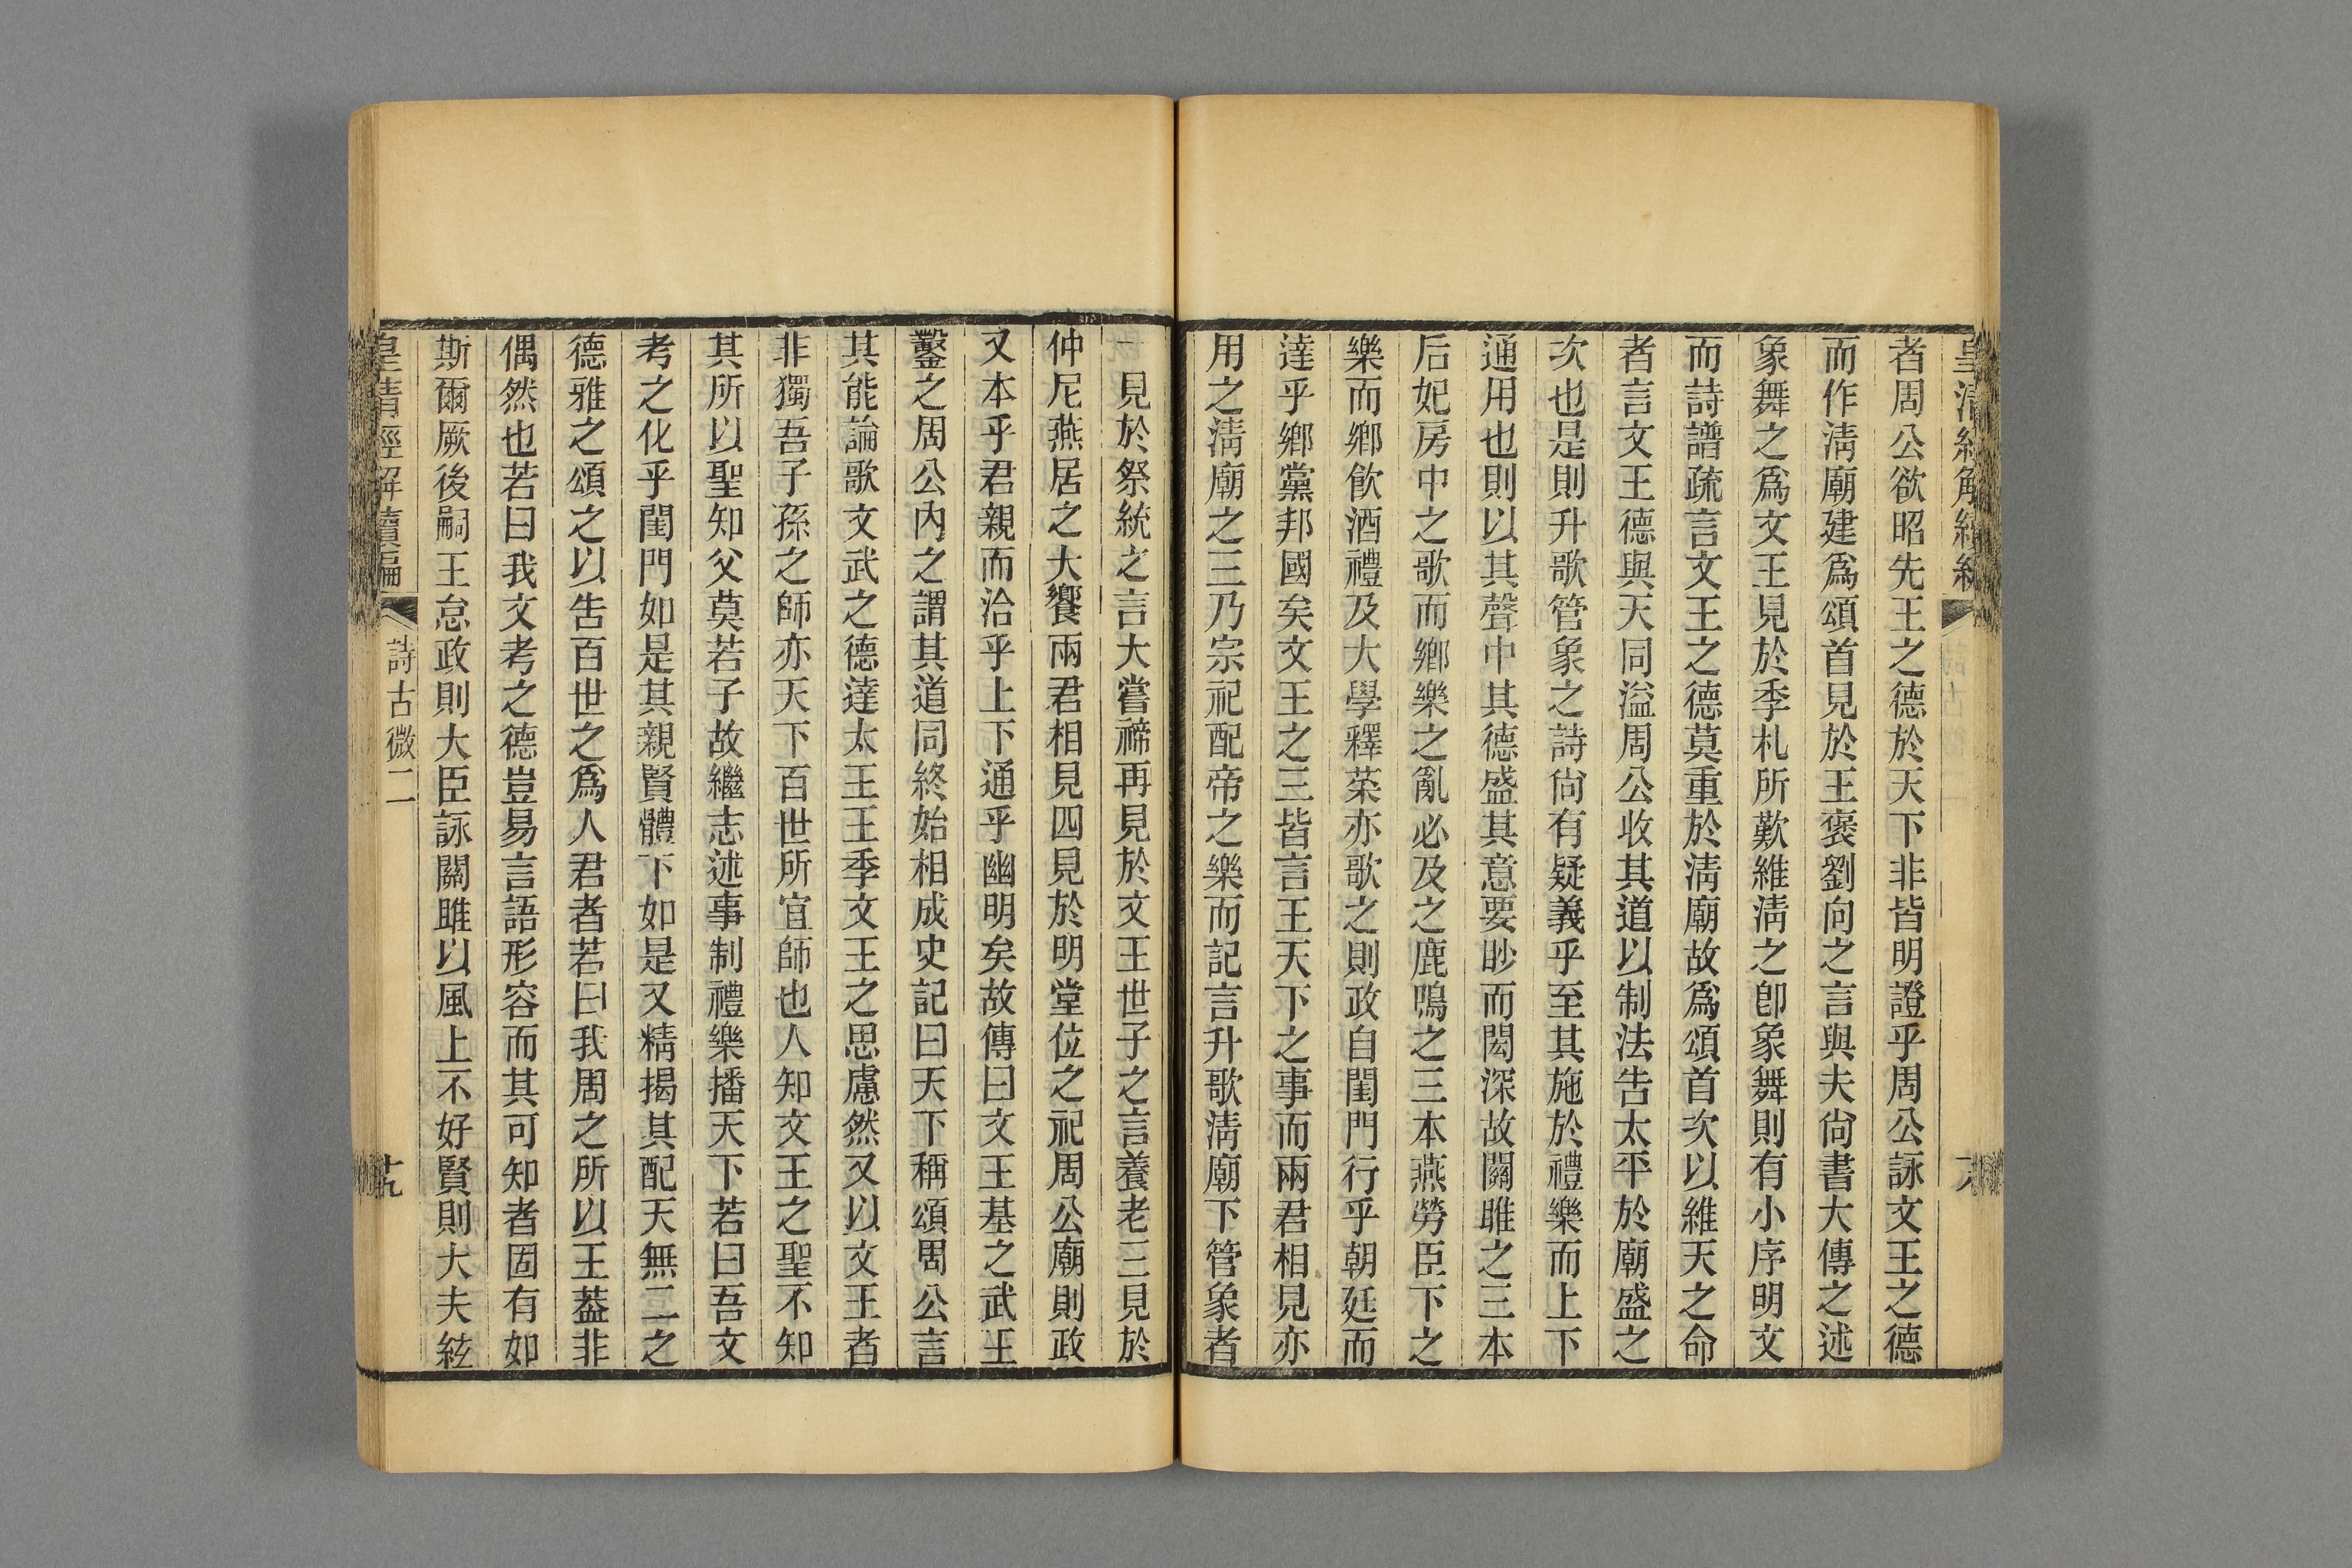 者周公欲昭先王之德於天下非皆明證乎周公詠文王之德
而作淸廟建爲頌首見於王褒劉向之言與夫尙書大傳之述
象舞之爲文王見於季札所歎維淸之卽象舞則有小序明文
而詩譜疏言文王之德莫重於淸廟故爲頌首次以維天之命
者言文王德與天同溢周公收其道以制法告太平於廟盛之
次也是則升歌管象之詩尙有疑義乎至其施於禮樂而上下
通用也則以其聲中其德盛其意要眇而閎深故關雎之三本
后妃房中之歌而鄕樂之亂必及之鹿鳴之三本燕勞臣下之
樂而鄕飮酒禮及大學釋菜亦歌之則政自閨門行乎朝廷而
達乎鄕黨邦國矣文王之三皆言王天下之事而兩君相見亦
用之淸廟之三乃宗祀配帝之樂而記言升歌淸廟下管象者
一見於祭統之言大嘗禘再見於文王世子之言養老三見於
仲尼燕居之大饗兩君相見四見於明堂位之祀周公廟則政
又本乎君親而洽乎上下通乎幽明矣故傳曰文王基之武王
鑿之周公內之謂其道同終始相成史記曰天下稱頌周公言
其能論歌文武之德達太王王季文王之思慮然又以文王者
非獨吾子孫之師亦天下百世所宜師也人知文王之聖不知
其所以聖知父莫若子故繼志述事制禮樂播天下若曰吾文
考之化乎閨門如是其親賢體下如是又精揭其配天無二之
德雅之頌之以告百世之爲人君者若曰我周之所以王葢非
偶然也若曰我文考之德豈易言語形容而其可知者固有如
斯爾厥後嗣王怠政則大臣詠關雎以風上不好賢則大夫絃
皇淸經解續編
詩古微二
十九